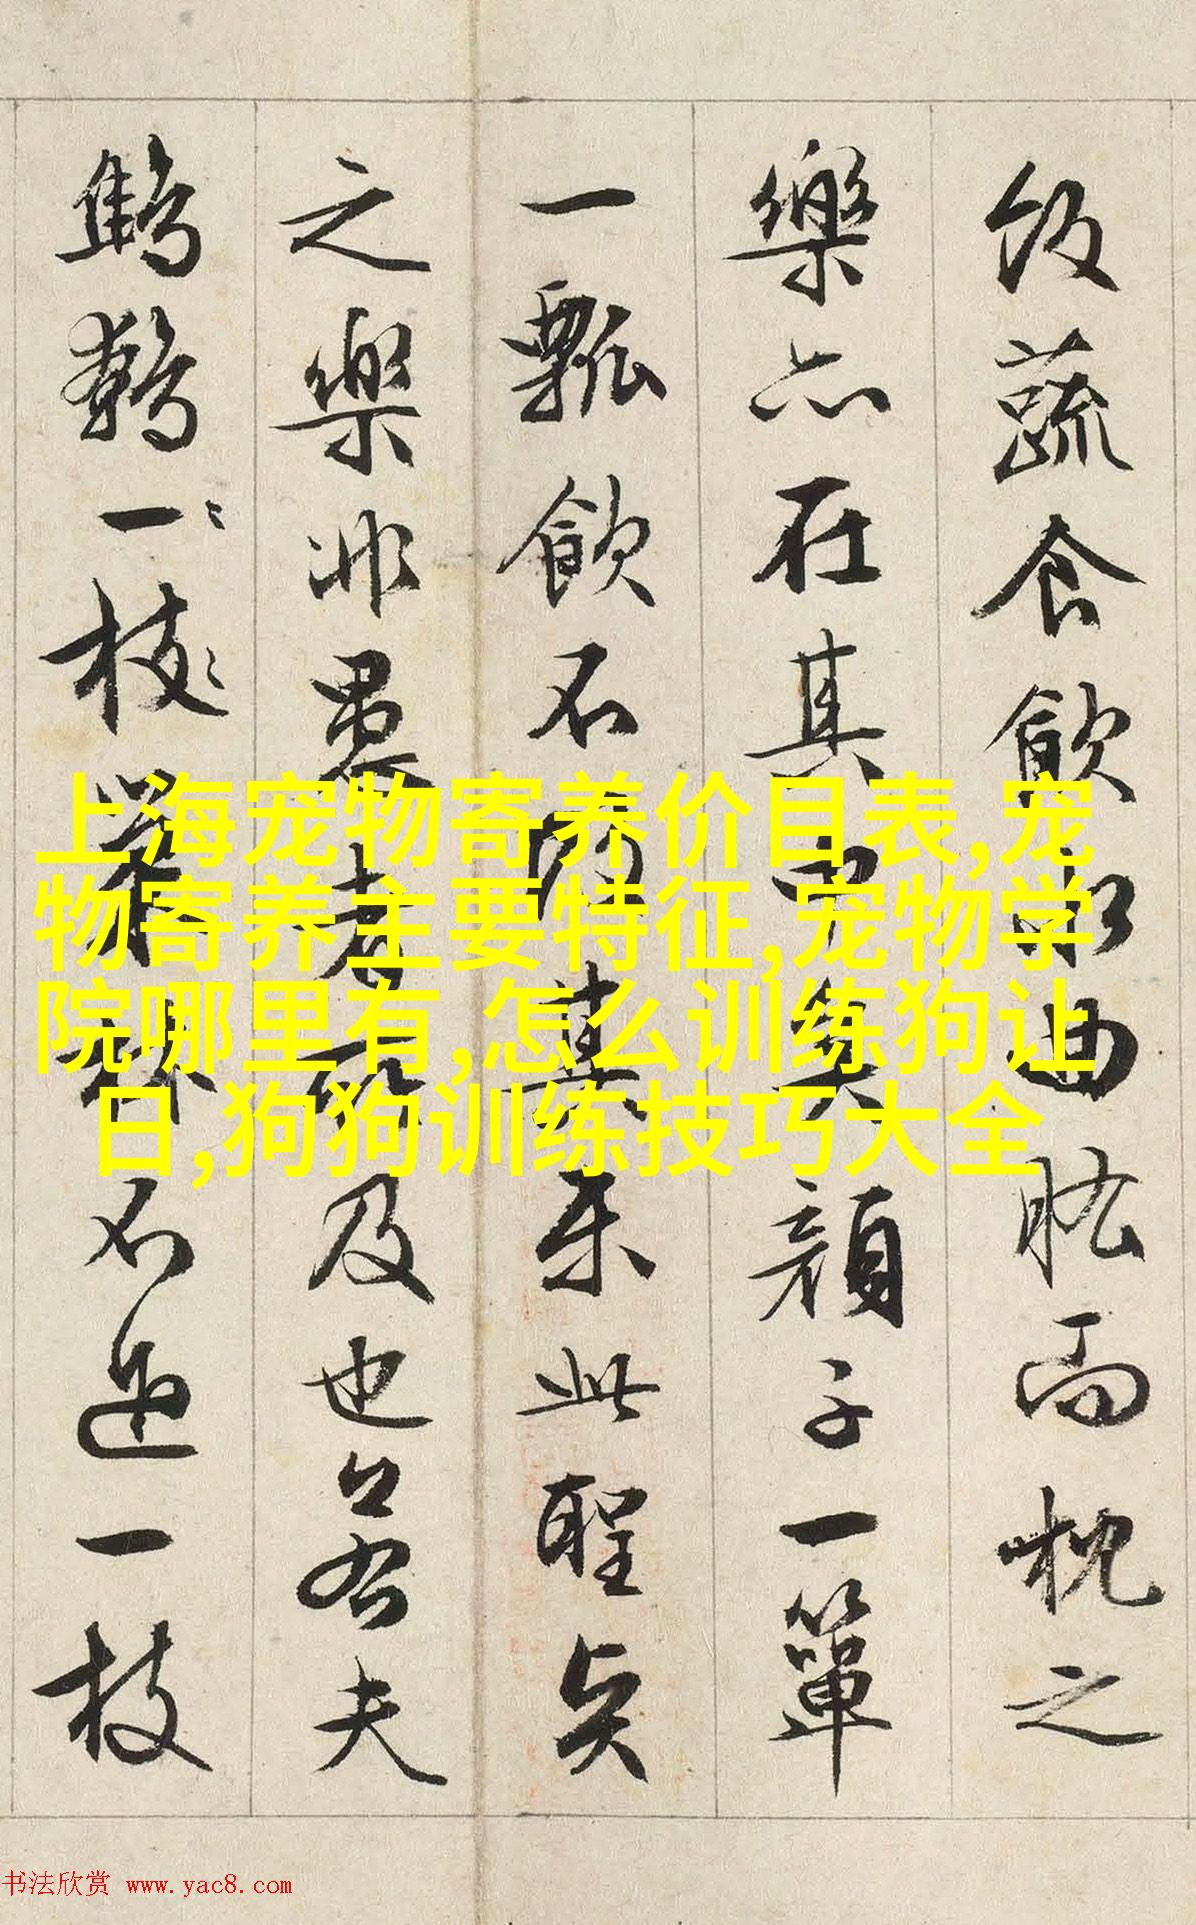 飯蔬食飲水曲肱而枕之
樂亦在其中矣顏子一簞
一瓢飲不改其樂此聖賢
之樂非愚者所及也若夫
鷦鷯一枝巢林不過一枝
上海宠物寄养价目表,宠
物寄养主要特征,宠物学
院哪里有,怎么训练狗让
日,狗狗训练技巧大全
书法欣赏 www.yac8.com